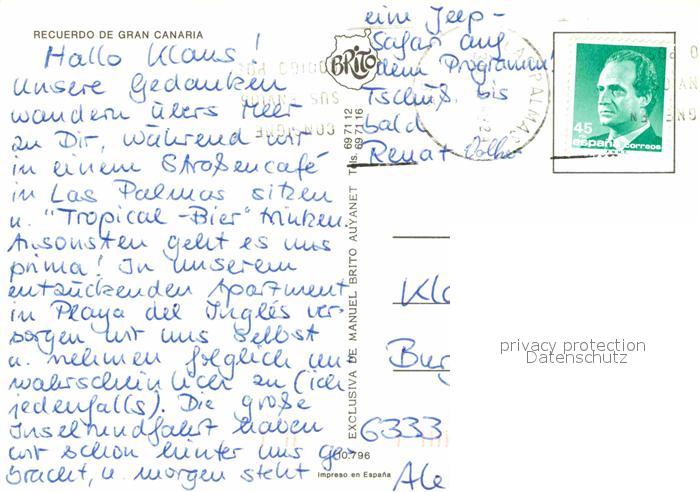 RECUERDO DE GRAN CANARIA
Hallo Klaus!
Unsere Gedanken
wandern übers Meer
zu Dir, während wir
in einem Straßencafé
in Las Palmas sitzen
u. "Tropical-Bier" trinken.
Ansonsten geht es uns
prima! In unserem
entzückenden Apartment
in Playa del Inglés ver-
sorgen wir uns selbst
u. nehmen folglich un
wahrscheinlich zu (ich
jedenfalls). Die große
Inselrundfahrt haben
wir schon hinter uns ge-
bracht, u. morgen steht
eine Jeep-
Safari auf
dem Programm!
Tschüß, bis
bald
Renat Volker
BRITO
EXCLUSIVA DE MANUEL BRITO AUYANET Tels. 69 71 12
69 71 16
10.796
Impreso en España
LAS PALMAS
45
españa correos
Kla
Burg
6333
Ale
privacy protection
Datenschutz